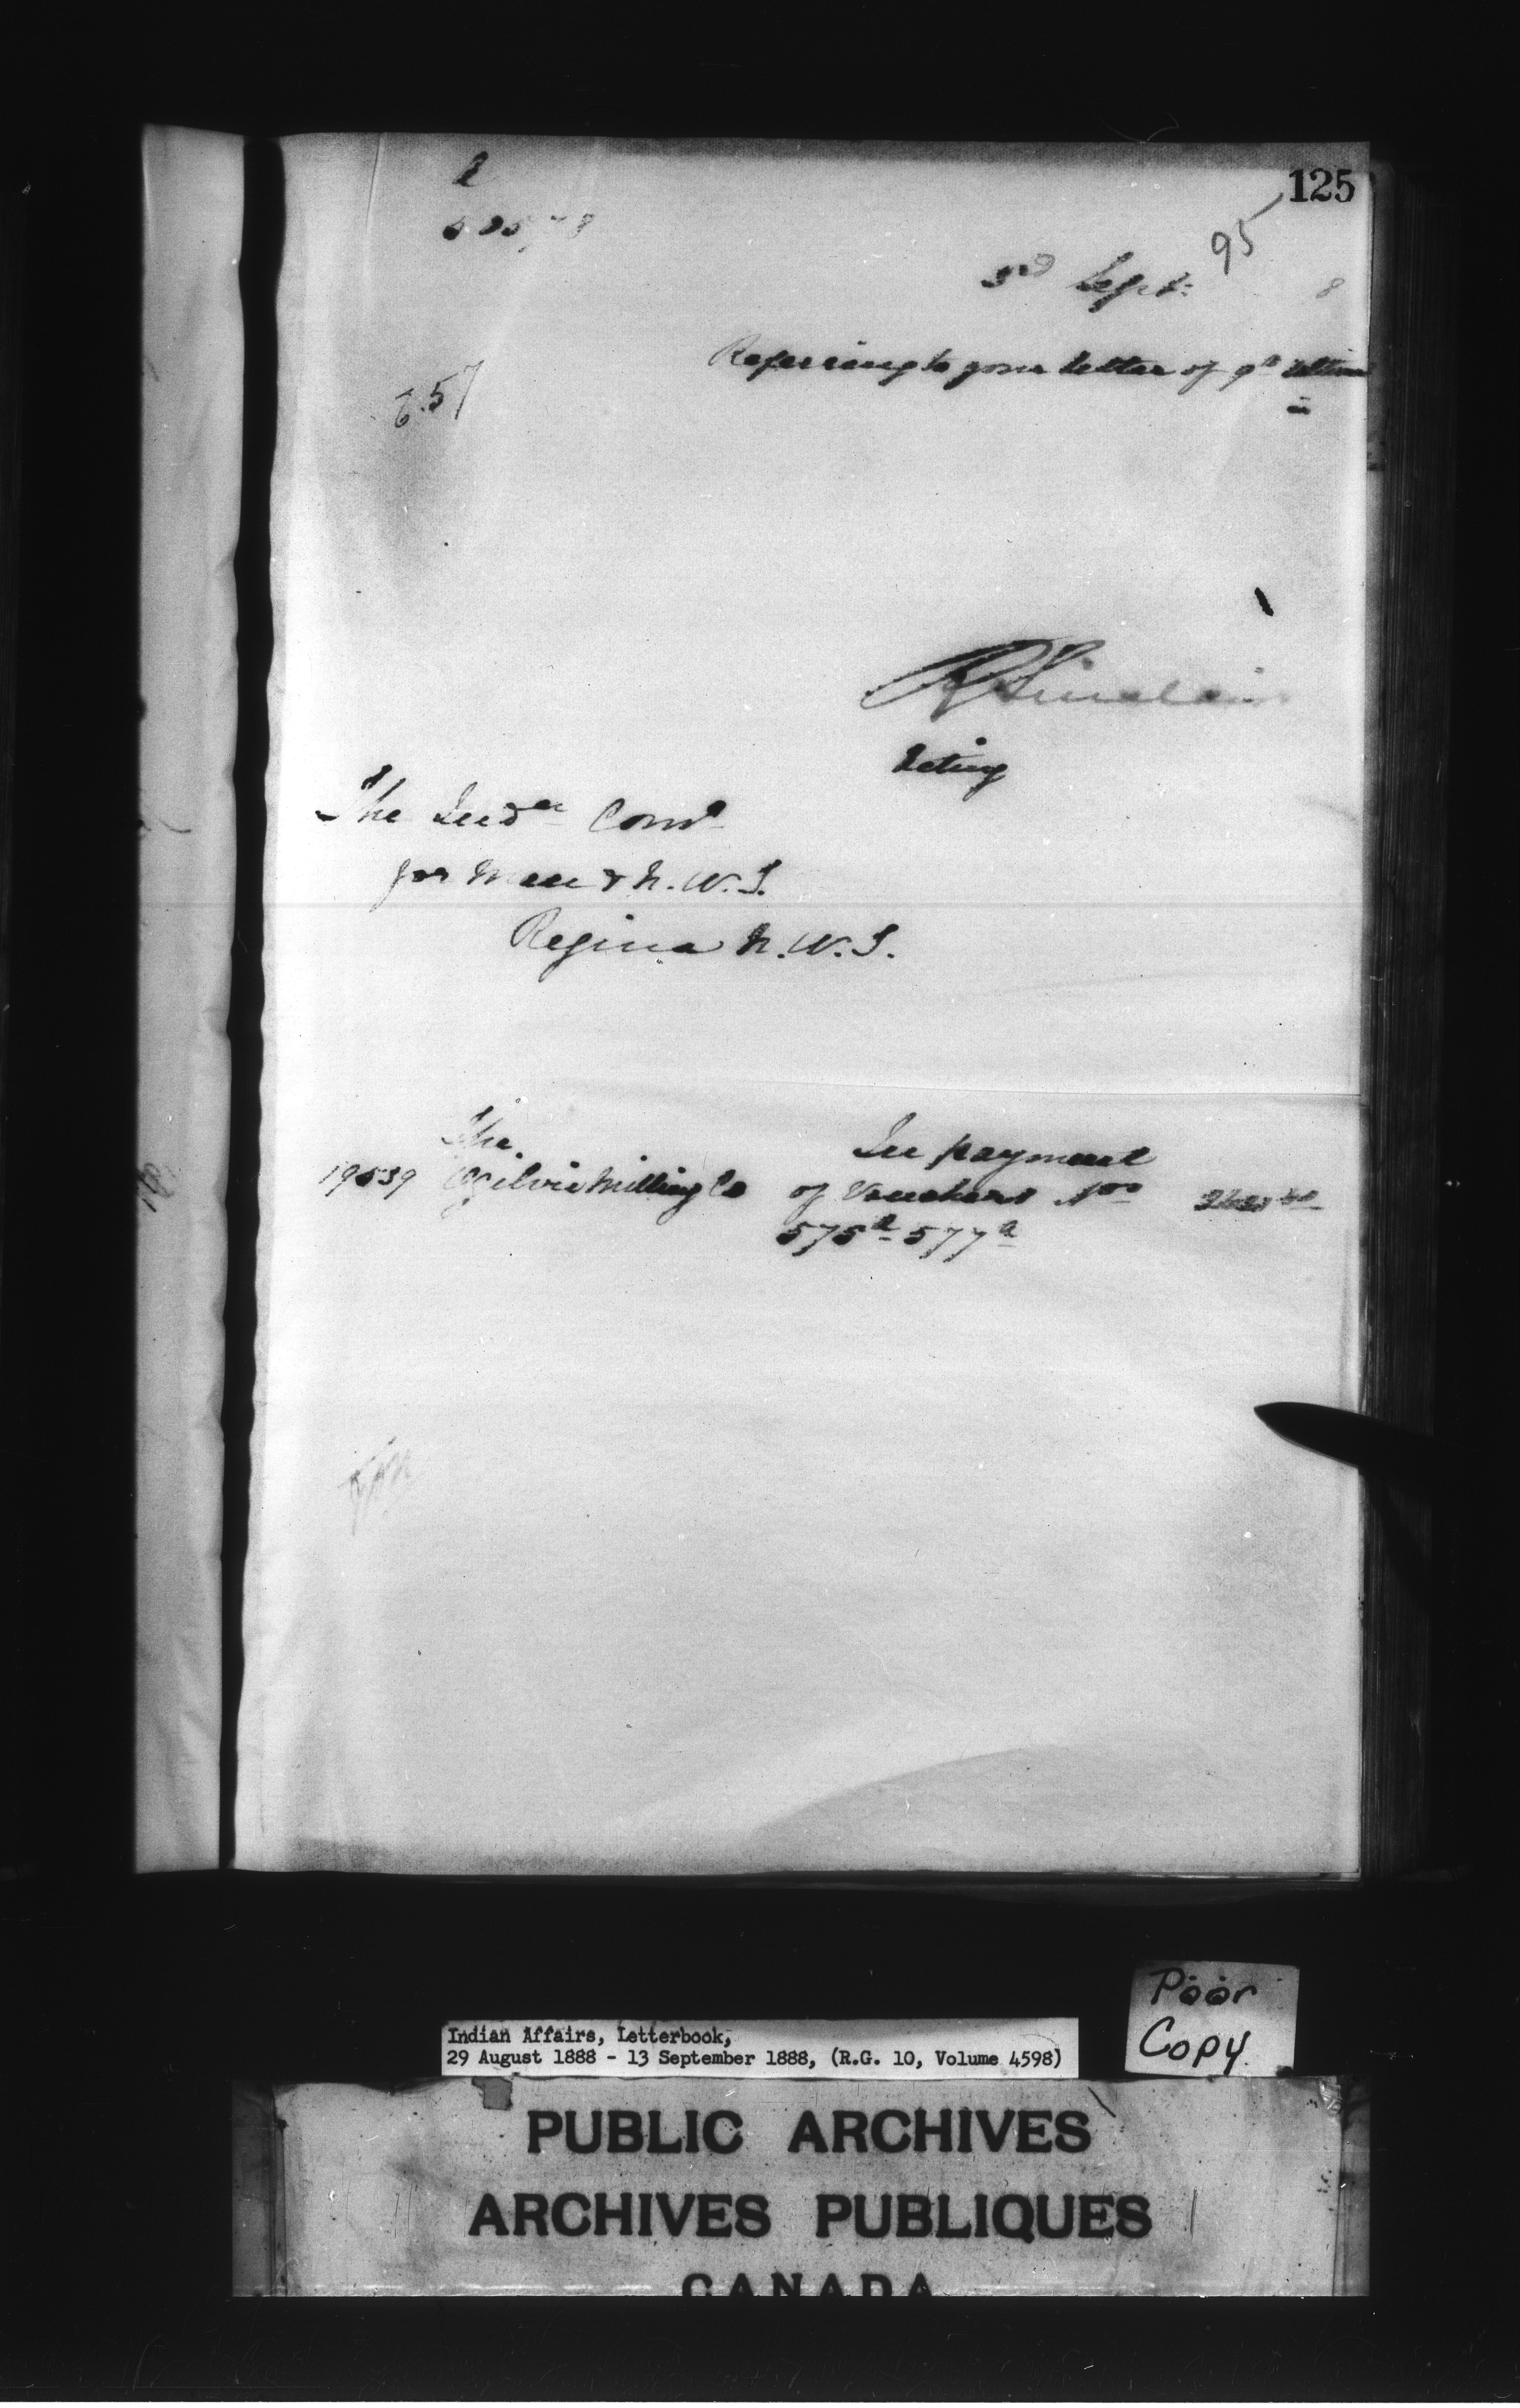 125
95
3rd Sept: 8
Referring to your letter of 9th Ultimo
657
R Sinclair
Acting
The Indn Comr
for Man & N.W.T.
Regina N.W.T.
The In payment
19539 Ogilvie Milling Co of Vouchers Nos
575a 577a
Poor
Copy
Indian Affairs, Letterbook,
29 August 1888 - 13 September 1888, (R.G. 10, Volume 4598)
PUBLIC ARCHIVES
ARCHIVES PUBLIQUES
CANADA